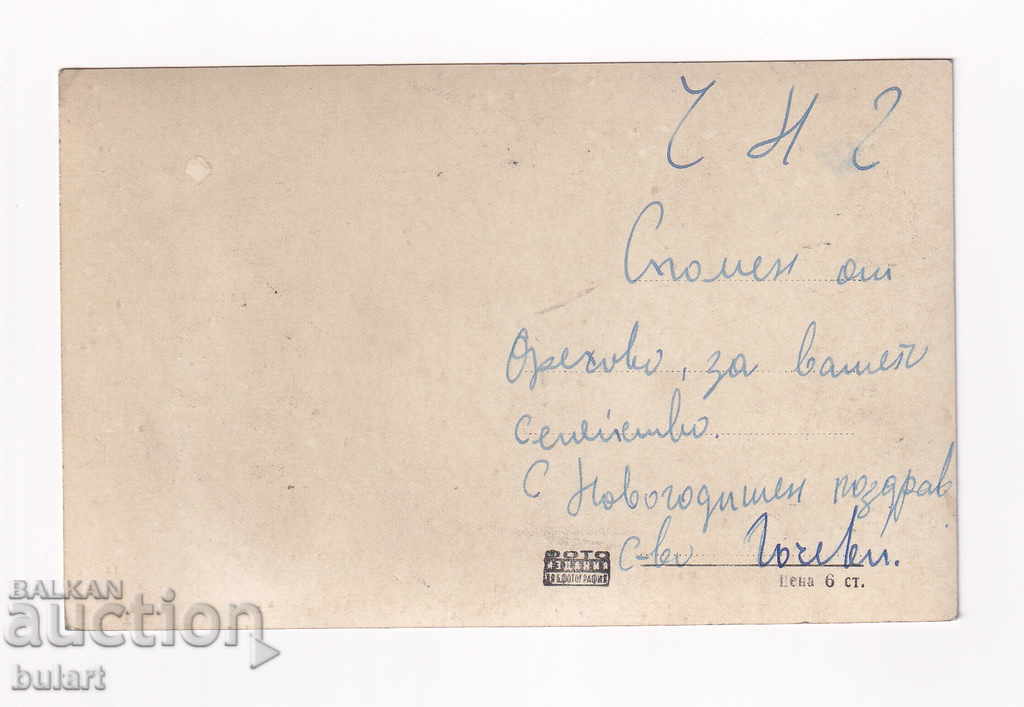 Ч Н Г
Спомен от
Орехово, за вашето
семейство.
С Новогодишен поздрав
с-во Гочеви.
ФОТО
ИЗДАНИЯ
Цена 6 ст.
BALKAN
auction
bulart